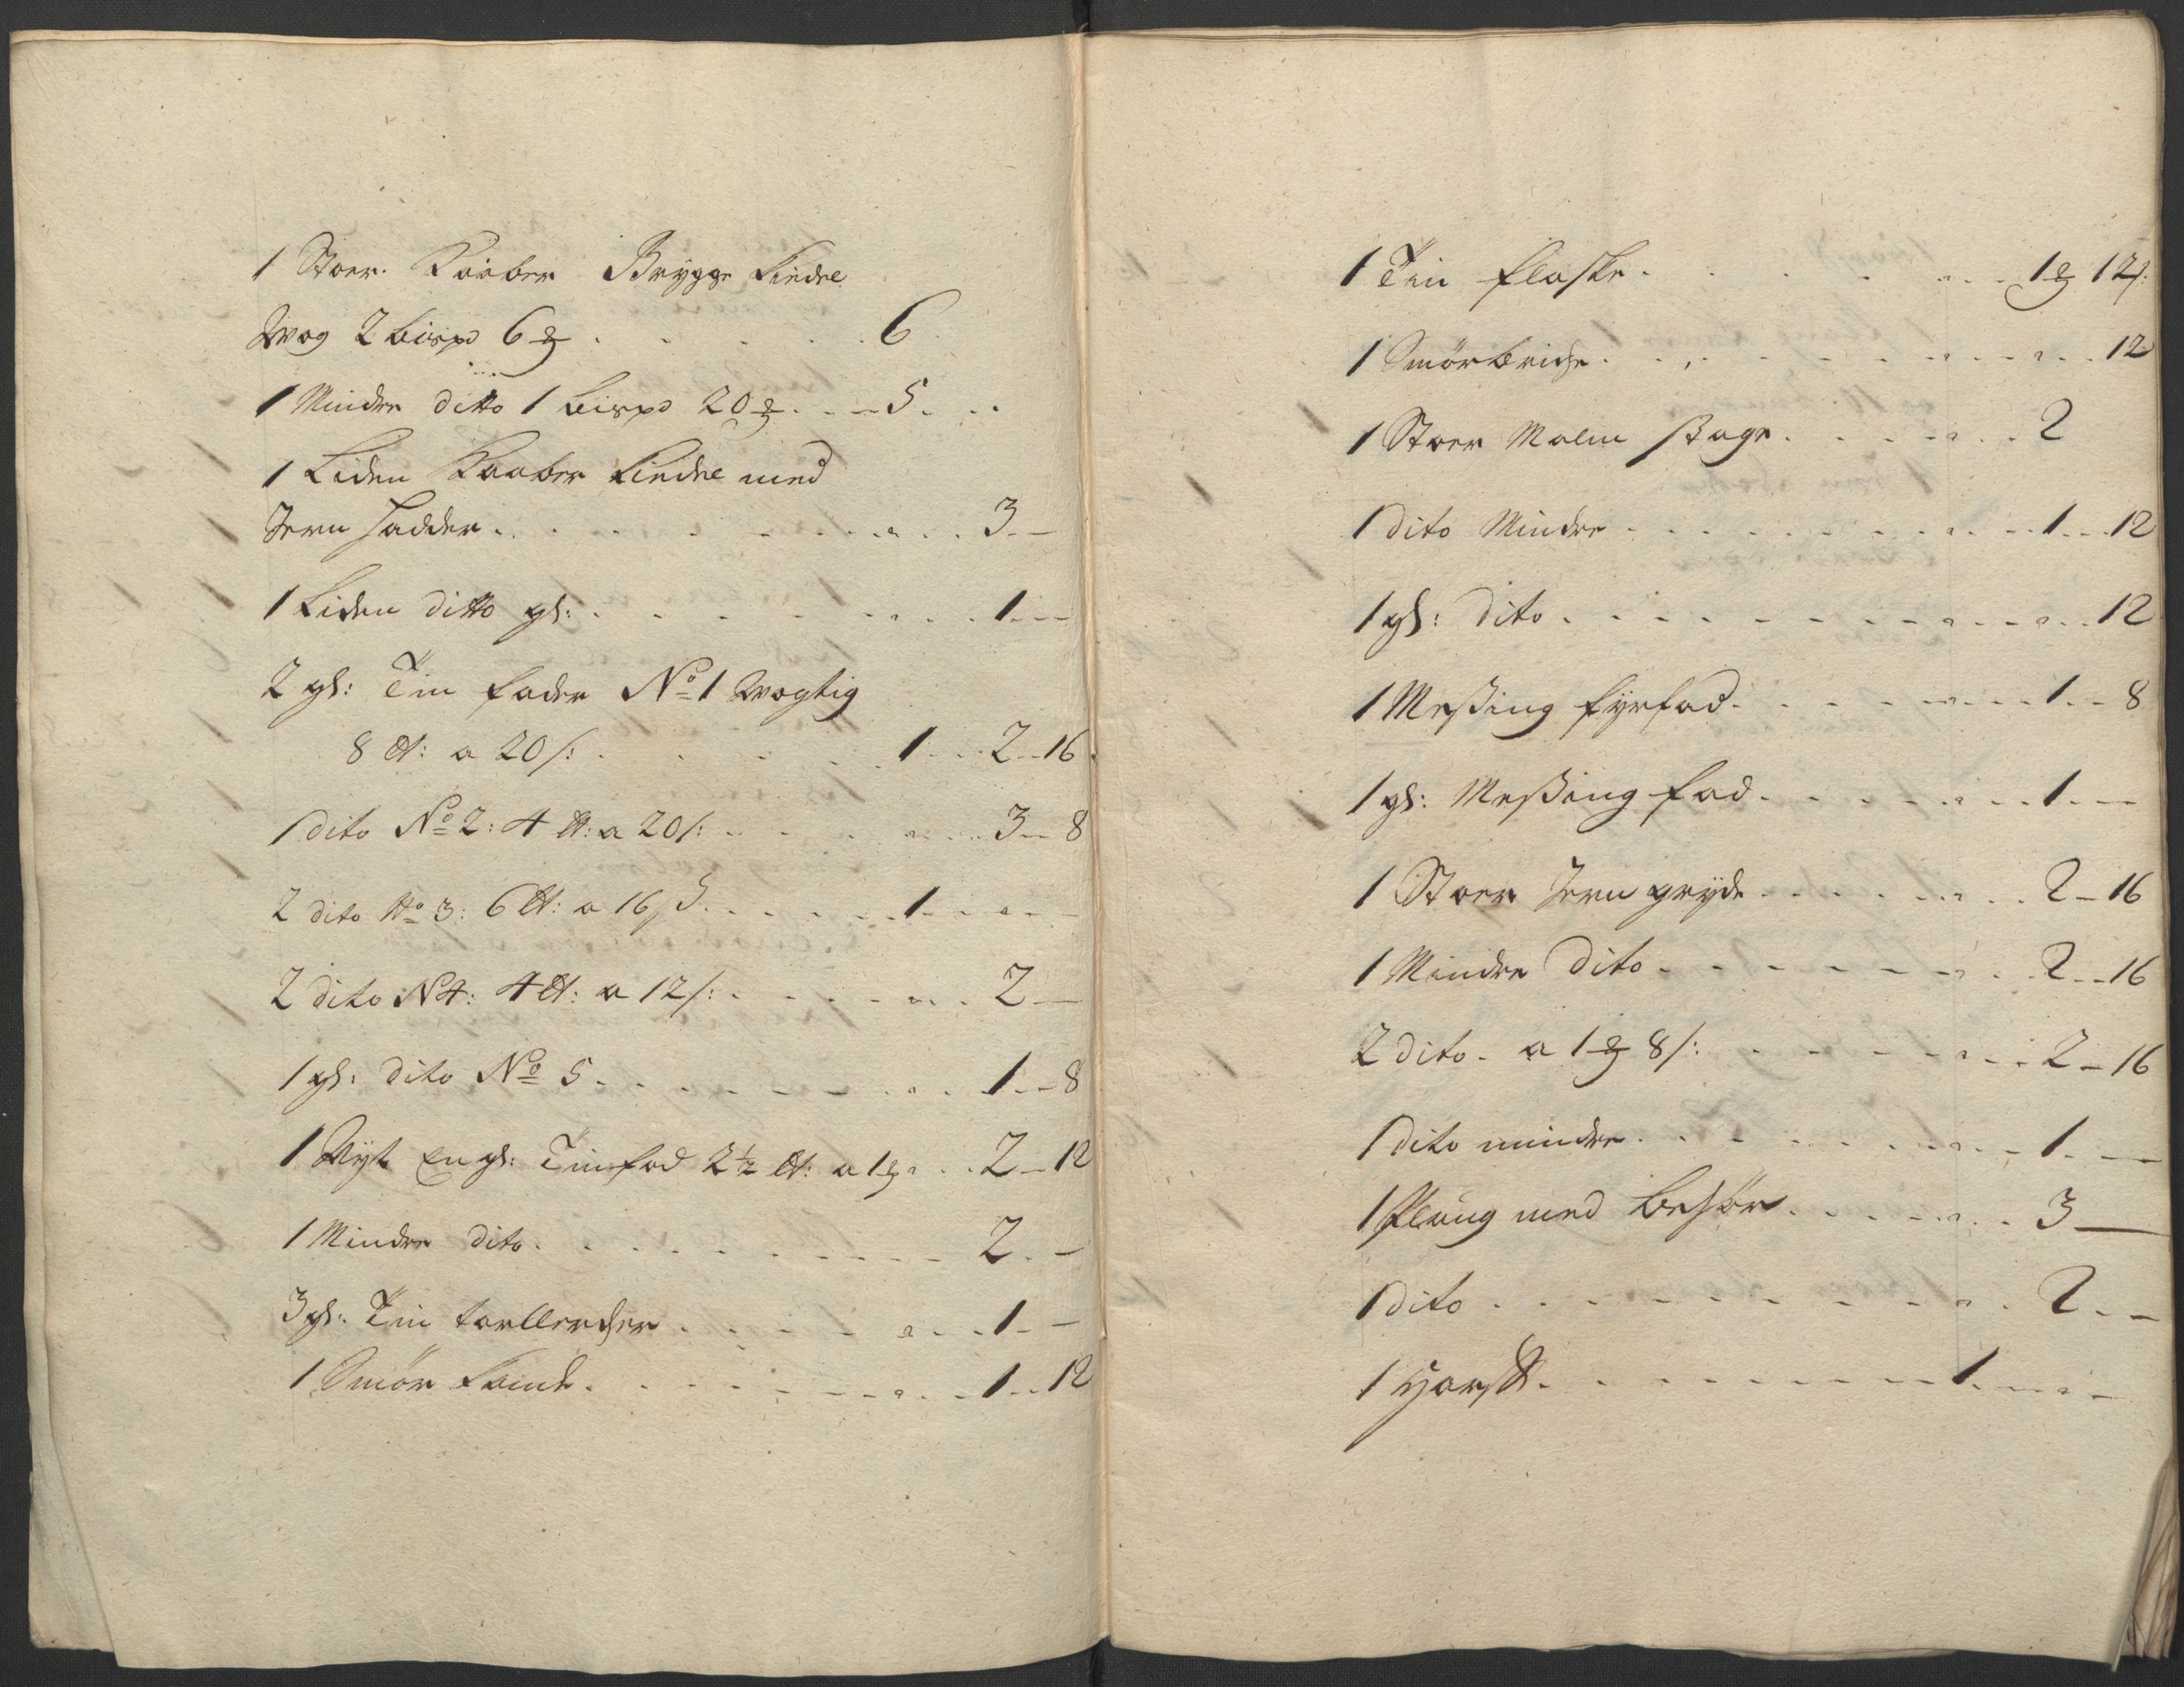 1 Stoer Kaaber Brygge Kiedel
Wog 2 Bispd 6 ℔ . . . . . 6
1 Mindre ditto 1 Bispd 20 ℔ . . . 5 . .
1 Liden Kaaber Kiedel med
Jern Hadder . . . . . 3 –
1 Liden ditto gl: . . . . . 1 – –
2 gl: Tin fader No 1 Wogtig
8 ℔: a 20 s: . . . . 1 . . 2 . . 16
1 dito No 2: 4 ℔: a 20 s: . . . . 3 – 8
2 dito No 3: 6 ℔: a 16 s . . . . 1 – – –
2 dito N 4: 4 ℔: a 12 s: . . . . 2 –
1 gl: dito No 5 . . . . . 1 – 8
1 Nyt Engl: Tinfad 2 1/2 ℔: a 1 . . . 2 – 12
1 Mindre dito . . . . . 2 . –
3 gl: Tin tallercher . . . . . 1 . –
1 Smør Kande . . . . . 1 . . 12
1 Tin flaske . . . . . 1 12 s:
1 Smørbriche . . . . . 12
1 Stoer Malm Stage . . . . . 2
1 dito Mindre . . . . . 1 . . 12
1 gl: dito . . . . . 12
1 Messing fyrfad . . . . . 1 . – 8
1 gl: Messing fad . . . . . 1 . –
1 Stoer Jern gryde . . . . . 2 – 16
1 Mindre dito . . . . . 2 – 16
2 dito a 1 8 s: . . . . . 2 – 16
1 dito mindre . . . . . 1 . –
1 Ploug med Behør . . . . . 3 –
1 dito . . . . . 2 . –
1 Harff . . . . . 1 . – –